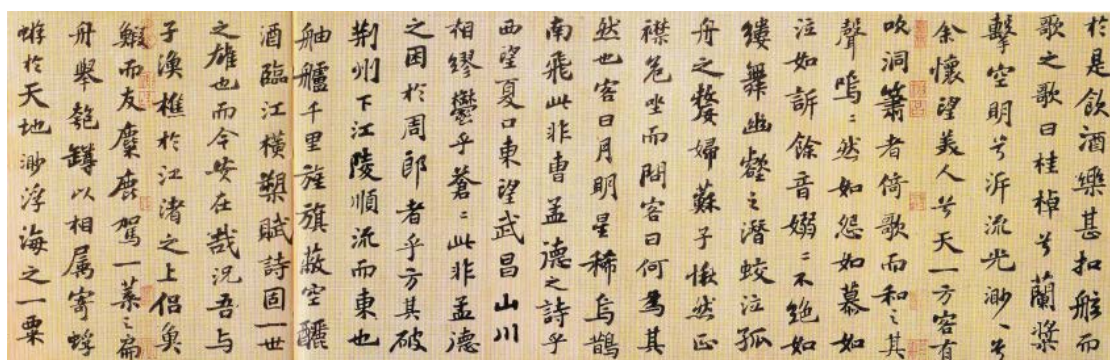 於是飲酒樂甚扣舷而
歌之歌曰桂棹兮蘭槳
擊空明兮泝流光渺〻兮
余懷望美人兮天一方客有
吹洞簫者倚歌而和之其
聲嗚〻然如怨如慕如
泣如訴餘音嫋〻不絕如
縷舞幽壑之潛蛟泣孤
舟之嫠婦蘇子愀然正
襟危坐而問客曰何為其
然也客曰月明星稀烏鵲
南飛此非曹孟德之詩乎
西望夏口東望武昌山川
相繆鬱乎蒼〻此非孟德
之困於周郎者乎方其破
荆州下江陵順流而東也
舳艫千里旌旗蔽空釃
酒臨江橫槊賦詩固一世
之雄也而今安在哉況吾與
子漁樵於江渚之上侶魚
鰕而友麋鹿駕一葉之扁
舟舉匏罇以相屬寄蜉
蝣於天地渺浮海之一粟